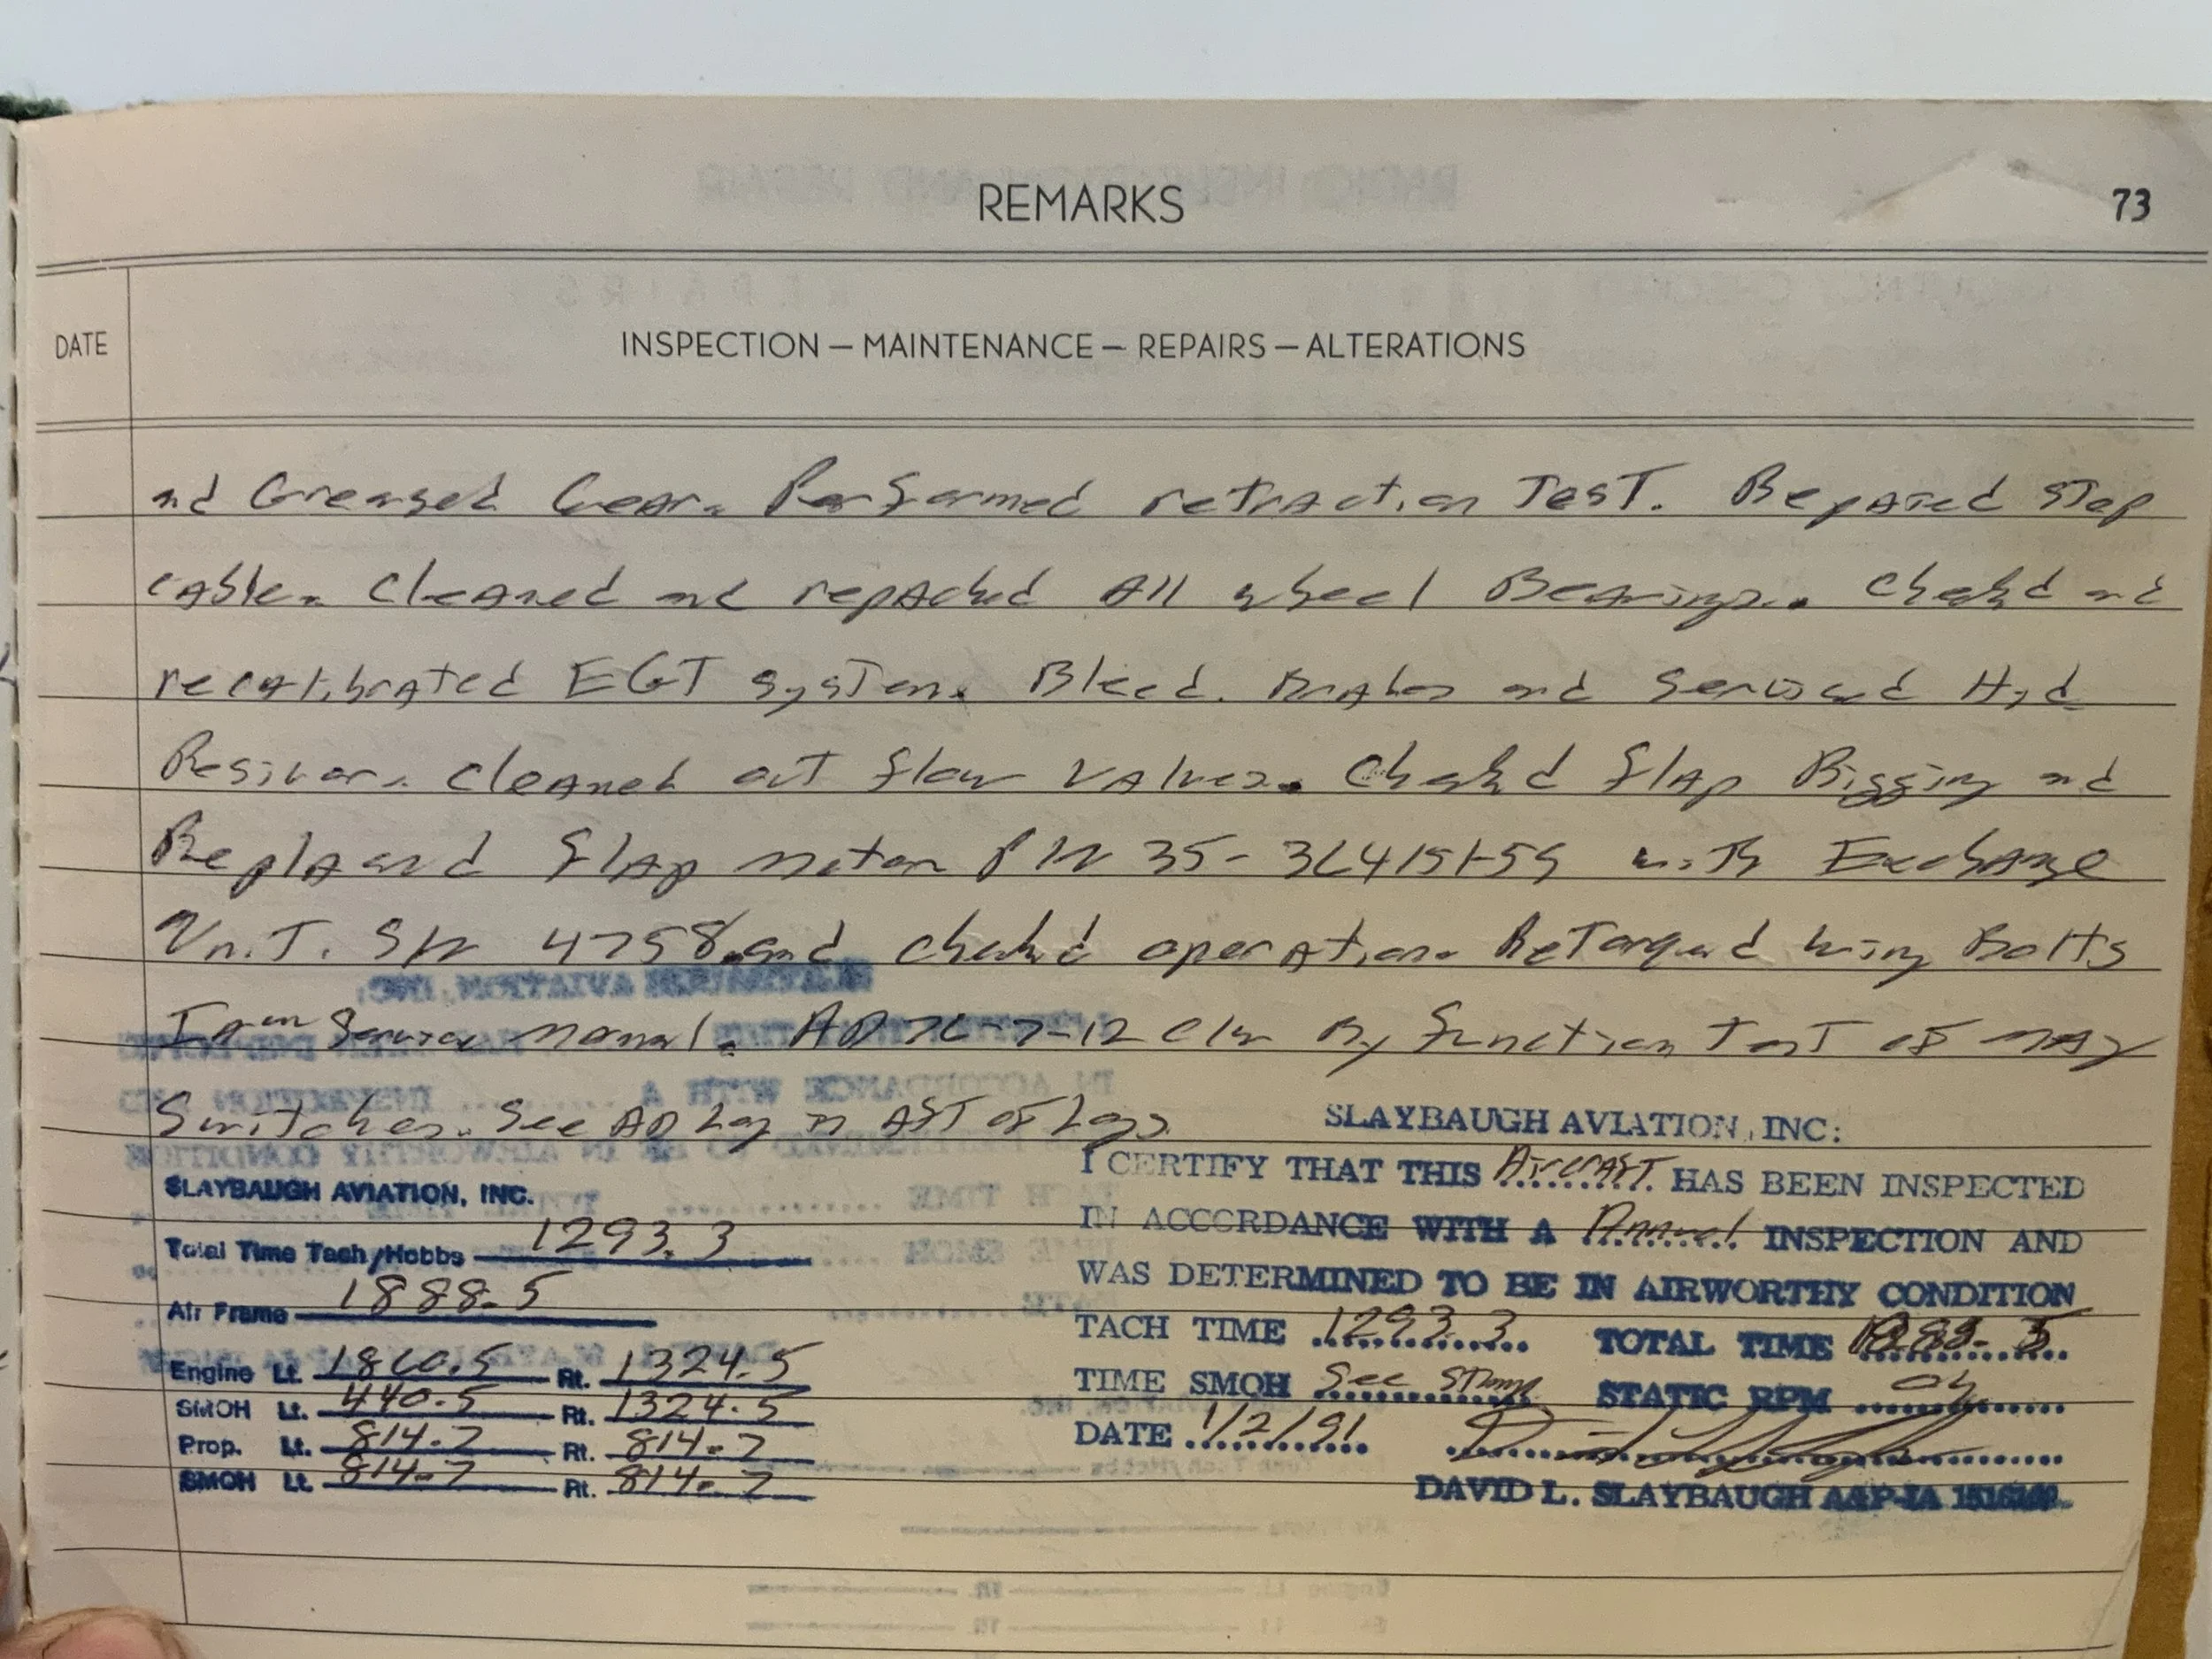 REMARKS
73
DATE
INSPECTION — MAINTENANCE — REPAIRS — ALTERATIONS
and Greased Gear. Performed retraction Test. Repaired step
cable. Cleaned and repacked All wheel Bearings. Checked and
recalibrated EGT system. Bleed Brakes and Serviced Hyd
Resivor. Cleaned out flow valves. Checked flap Rigging and
Replaced flap motor P/N with Exchange
Unit. S/N 4758 and checked operation. ReTorqued wing Bolts
Service manual. AD 76-7-12 C/W By function Test of mag
Switches. See AD Log of Logs
SLAYBAUGH AVIATION, INC.
Total Time Tach/Hobbs 1293.3
Air Frame 1888.5
Engine Lt. 1860.5 Rt. 1324.5
SMOH Lt. 440.5 Rt. 1324.5
Prop. Lt. 814.7 Rt. 814.7
SMOH Lt. 814.7 Rt. 814.7
SLAYBAUGH AVIATION, INC:
I CERTIFY THAT THIS Aircraft HAS BEEN INSPECTED
IN ACCORDANCE WITH A Annual INSPECTION AND
WAS DETERMINED TO BE IN AIRWORTHY CONDITION
TACH TIME 1293.3 TOTAL TIME 1888.5
TIME SMOH See Stamp STATIC RPM ok
DATE 1/2/91
DAVID L. SLAYBAUGH A&P-IA